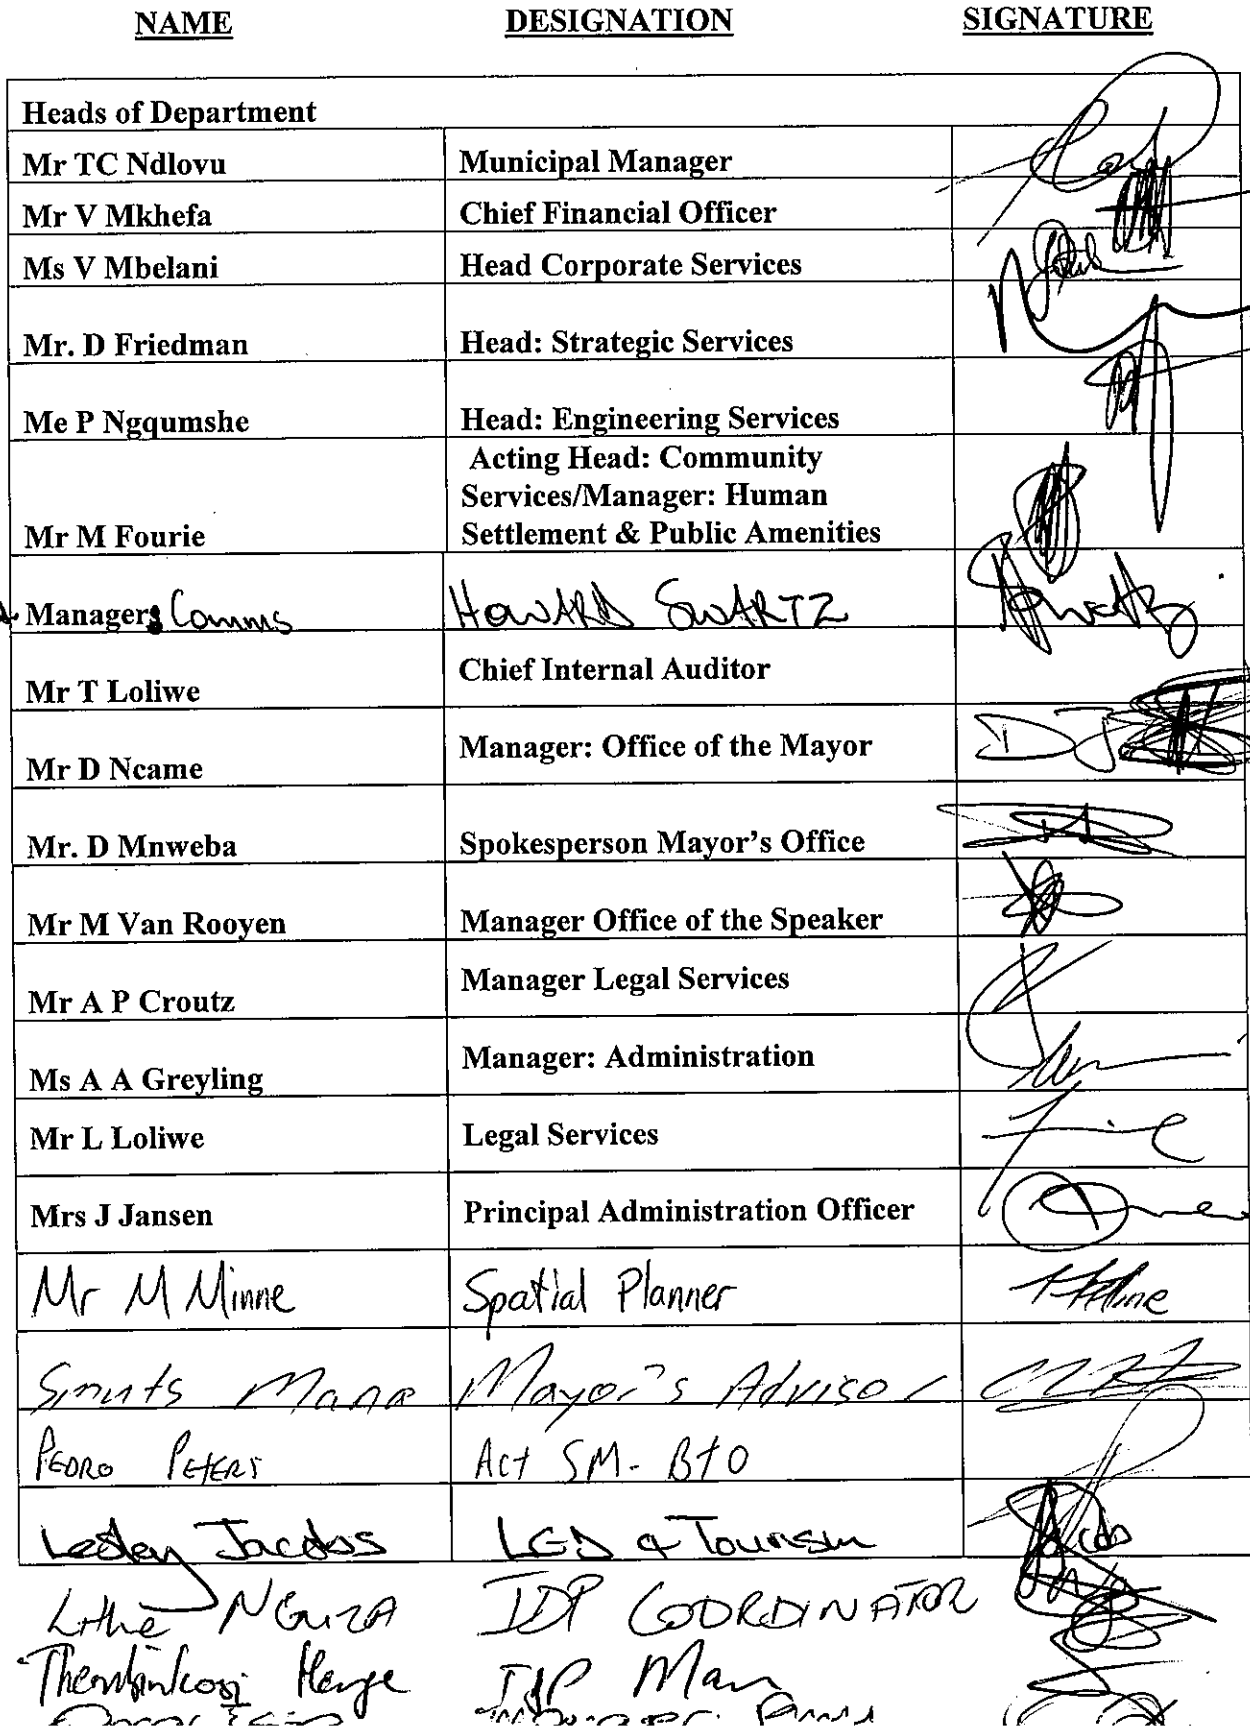 NAME DESIGNATION SIGNATURE
Heads of Department
Mr TC Ndlovu Municipal Manager
Mr V Mkhefa Chief Financial Officer
Ms V Mbelani Head Corporate Services
Mr. D Friedman Head: Strategic Services
Me P Ngqumshe Head: Engineering Services
Acting Head: Community
Services/Manager: Human
Mr M Fourie Settlement & Public Amenities
Manager: Comms HOWARD SWARTZ
Mr T Loliwe Chief Internal Auditor
Mr D Ncame Manager: Office of the Mayor
Mr. D Mnweba Spokesperson Mayor's Office
Mr M Van Rooyen Manager Office of the Speaker
Mr A P Croutz Manager Legal Services
Ms A A Greyling Manager: Administration
Mr L Loliwe Legal Services
Mrs J Jansen Principal Administration Officer
Mr M Minne Spatial Planner
Smuts Mana Mayor's Advisor
PEDRO PETERS Act SM- BTO
Lesley Jacobs LED & Tourism
IDP COORDINATOR
IDP Man